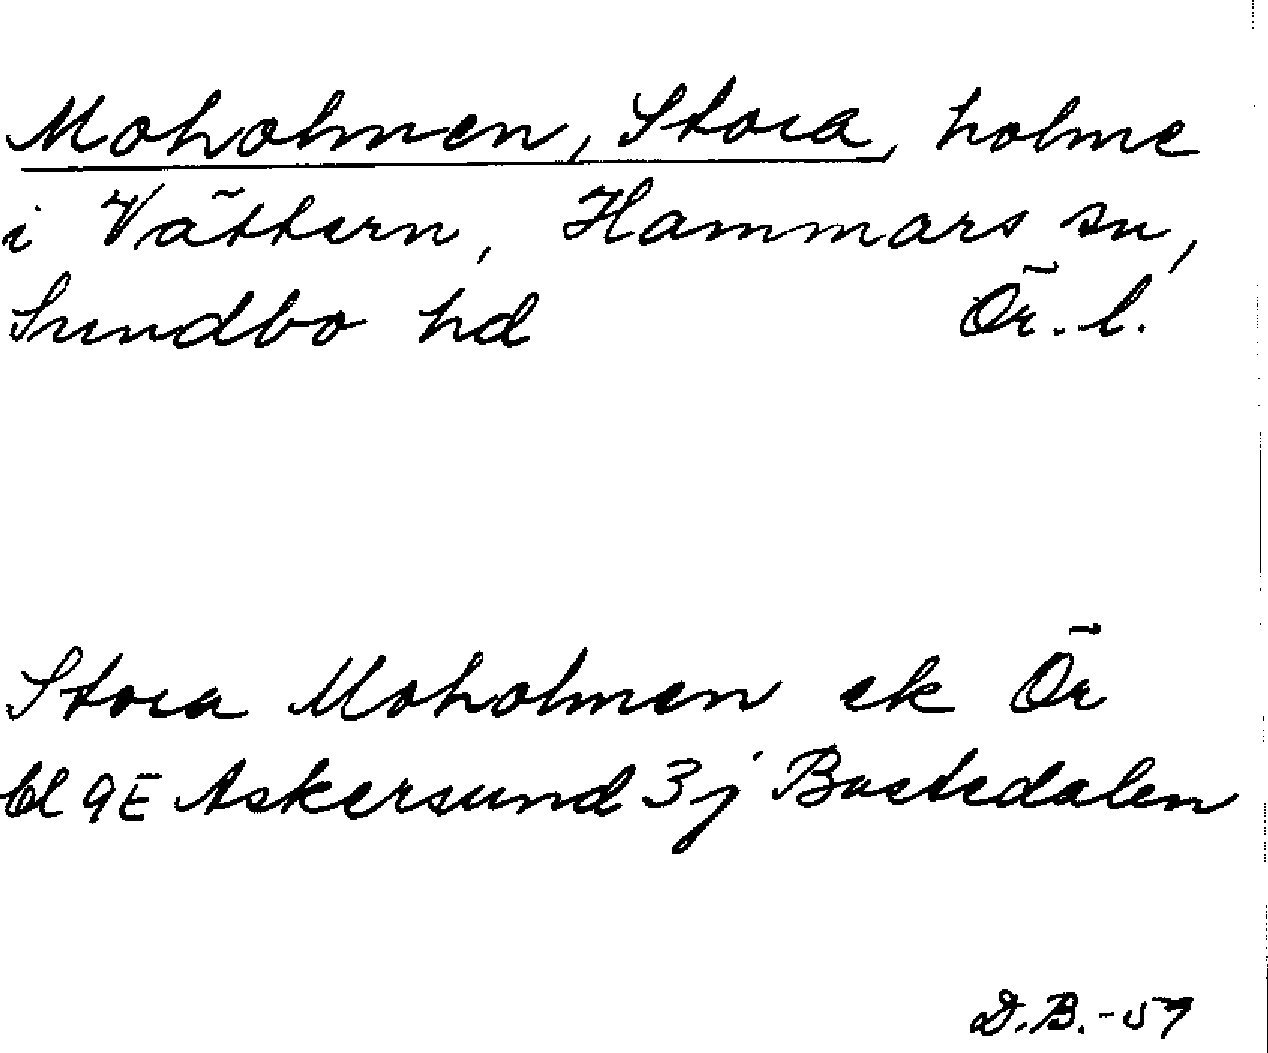 Moholmen, Stora, holme
i Vättern, Hammars sn,
Sundbo hd Ör. l.
Stora Moholmen ek Ör
bl 9E Askersund 3j Bastedalen
D.B.-57